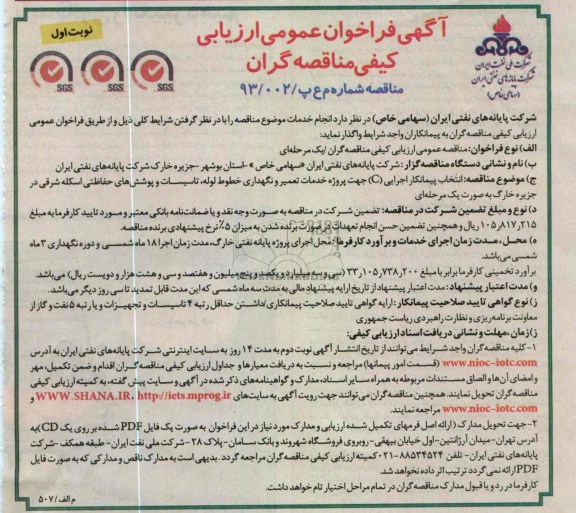 نوبت اول
آگهی فراخوان عمومی ارزیابی
کیفی مناقصه گران
مناقصه شماره م ع پ/۹۳/۰۰۲
شرکت ملی نفت ایران
شرکت پایانه های نفتی ایران
(سهامی خاص)
SGS
SGS
SGS
شرکت پایانه‌های نفتی ایران (سهامی خاص) در نظر دارد انجام خدمات موضوع مناقصه را با در نظر گرفتن شرایط کلی ذیل و از طریق فراخوان عمومی
ارزیابی کیفی مناقصه گران به پیمانکاران واجد شرایط واگذار نماید:
الف) نوع فراخوان: مناقصه عمومی ارزیابی کیفی مناقصه گران /یک مرحله‌ای
ب) نام و نشانی دستگاه مناقصه گزار: شرکت پایانه‌های نفتی ایران «سهامی خاص» -استان بوشهر -جزیره خارک شرکت پایانه‌های نفتی ایران
ج) موضوع مناقصه: انتخاب پیمانکار اجرایی (C) جهت پروژه خدمات تعمیر و نگهداری خطوط لوله، تاسیسات و پوشش‌های حفاظتی اسکله شرقی در
جزیره خارگ به صورت یک مرحله‌ای
د) نوع و مبلغ تضمین شرکت در مناقصه: تضمین شرکت در مناقصه به صورت وجه نقد و یا ضمانت‌نامه بانکی معتبر و مورد تایید کارفرما به مبلغ
۱٫۱۰۵٫۸۱۷٫۲۱۵ ریال و همچنین تضمین حسن انجام تعهدات در صورت برنده شدن به میزان ۵٪ نرخ پیشنهادی برنده مناقصه.
ه) محل، مدت زمان اجرای خدمات و برآورد کارفرما: محل اجرای پروژه پایانه نفتی خارگ، مدت زمان اجرا ۱۸ ماه شمسی و دوره نگهداری ۳ ماه
شمسی می‌باشد.
برآورد تخمینی کارفرما برابر با مبلغ ۳۳٫۱۰۵٫۷۳۸٫۲۰۰ (سی و سه میلیارد و یکصد و پنج میلیون و هفتصد و سی و هشت هزار و دویست ریال) می‌باشد.
و) مدت اعتبار پیشنهاد: مدت اعتبار پیشنهاد از تاریخ ارایه پیشنهاد مالی به مدت سه ماه شمسی که این مدت قابل تمدید تا سی روز دیگر می‌باشد.
ز) نوع گواهی تایید صلاحیت پیمانکار: ارایه گواهی تایید صلاحیت پیمانکاری/داشتن حداقل رتبه ۴ تاسیسات و تجهیزات و یا رتبه ۵ نفت و گاز از
معاونت برنامه‌ریزی و نظارت راهبردی ریاست جمهوری
ز) زمان، مهلت و نشانی دریافت اسناد ارزیابی کیفی:
۱-کلیه مناقصه گران واجد شرایط می‌توانند از تاریخ انتشار آگهی نوبت دوم به مدت ۱۴ روز به سایت اینترنتی شرکت پایانه‌های نفتی ایران به آدرس
www.nioc-iotc.com (قسمت امور پیمانها) مراجعه و نسبت به دریافت معیارها و جداول ارزیابی کیفی مناقصه‌گران اقدام و ضمن تکمیل، مهر
و امضای آن‌ها و الصاق مستندات مربوطه به همراه سایر اسناد، مدارک و گواهینامه‌های ذکر شده در آگهی و سایت پیش گفته، به کمیته ارزیابی کیفی
مناقصه گران تحویل نمایند. همچنین مناقصه گران می‌توانند جهت رویت آگهی به سایت‌های WWW.SHANA.IR، http://iets.mprog.ir و
www.nioc-iotc.com مراجعه نمایند.
۲-جهت تحویل مدارک (ارائه اصل فرمهای تکمیل شده ارزیابی و مدارک مورد نیاز در این فراخوان به صورت یک فایل PDF شده بر روی یک CD) به
آدرس تهران- میدان آرژانتین- اول خیابان بیهقی- روبروی فروشگاه شهروند و بانک سامان- پلاک ۲۸- شرکت ملی نفت ایران- طبقه همکف -شرکت
پایانه‌های نفتی ایران- تلفن ۸۸۵۳۴۵۲۴-۰۲۱ کمیته ارزیابی کیفی مناقصه گران مراجعه گردد. بدیهی است به مدارک ناقص و مدارکی که به صورت فایل
PDF ارائه نمی‌گردد ترتیب اثر داده نخواهد شد.
کارفرما در رد و یا قبول مدارک مناقصه گران در تمام مراحل اختیار تام خواهد داشت.
م الف/۵۰۷